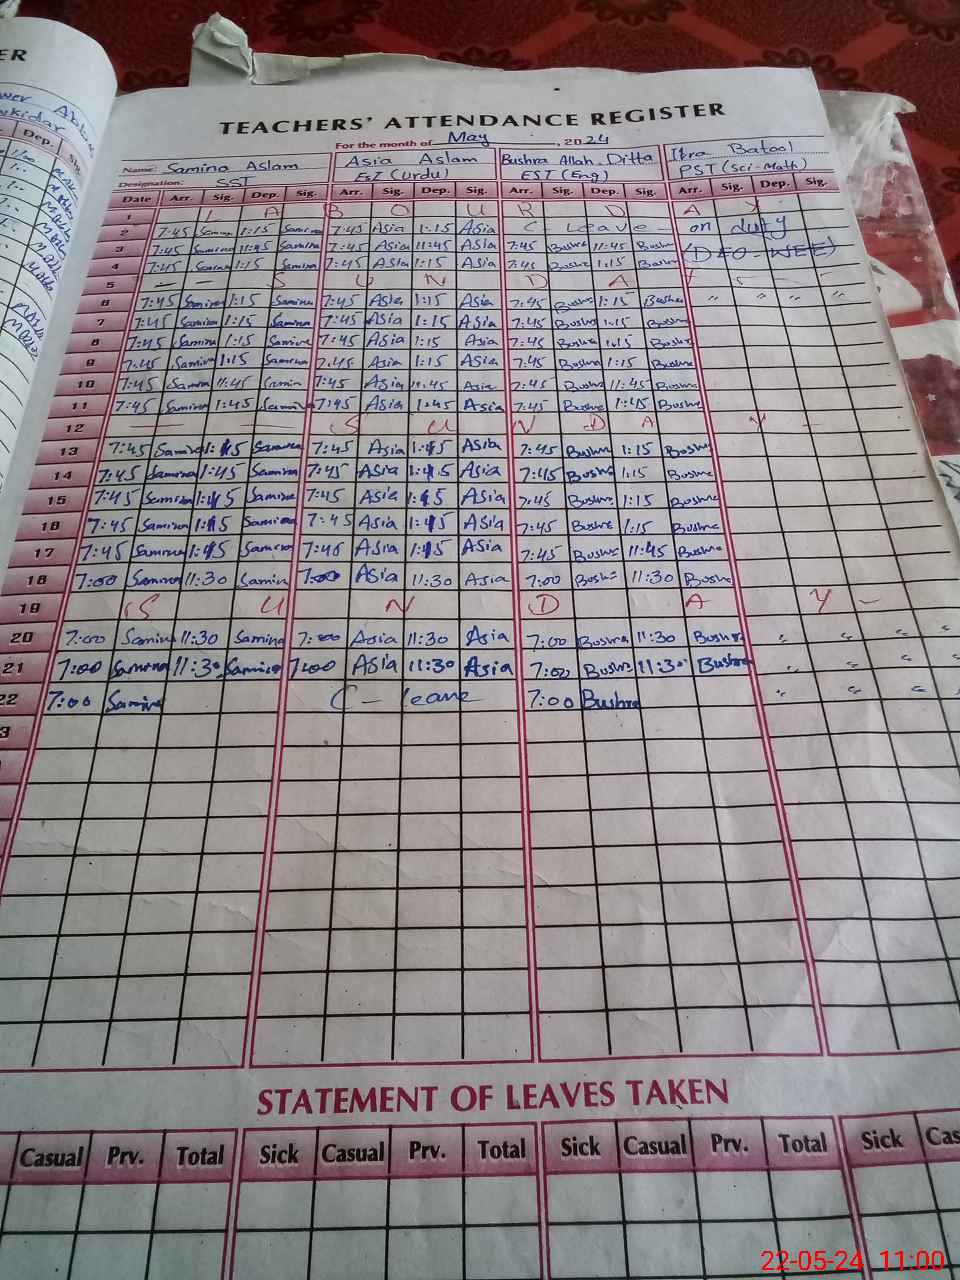 ER
TEACHERS' ATTENDANCE REGISTER
For the month of May, 2024
Name: Samina Aslam Asia Aslam Bushra Allah Ditta Iqra Batool
Designation: SST EST (Urdu) EST (Eng) PST (Sci-Math)
Dep.
Date Arr. Sig. Dep. Sig. Arr. Sig. Dep. Sig. Arr. Sig. Dep. Sig. Arr. Sig. Dep. Sig.
1 L A B O U R D A Y
2 7:45 Samina 1:15 Samina 7:45 Asia 1:15 Asia C - Leave - on duty
3 7:45 Samina 11:45 Samina 7:45 Asia 11:45 Asia 7:45 Bushra 11:45 Bushra (DEO-WEE)
4 7:45 Samina 1:15 Samina 7:45 Asia 1:15 Asia 7:45 Bushra 1:15 Bushra
5 — — S U N D A Y
6 7:45 Samina 1:15 Samina 7:45 Asia 1:15 Asia 7:45 Bushra 1:15 Bushra " " " "
7 7:45 Samina 1:15 Samina 7:45 Asia 1:15 Asia 7:45 Bushra 1:15 Bushra
8 7:45 Samina 1:15 Samina 7:45 Asia 1:15 Asia 7:45 Bushra 1:15 Bushra
9 7:45 Samina 1:15 Samina 7:45 Asia 1:15 Asia 7:45 Bushra 1:15 Bushra
10 7:45 Samina 11:45 Samina 7:45 Asia 11:45 Asia 7:45 Bushra 11:45 Bushra
11 7:45 Samina 1:45 Samina 7:45 Asia 1:45 Asia 7:45 Bushra 1:45 Bushra
12 — — S U N D A Y —
13 7:45 Samina 1:15 Samina 7:45 Asia 1:15 Asia 7:45 Bushra 1:15 Bushra
14 7:45 Samina 1:45 Samina 7:45 Asia 1:15 Asia 7:45 Bushra 1:15 Bushra
15 7:45 Samina 1:15 Samina 7:45 Asia 1:15 Asia 7:45 Bushra 1:15 Bushra
16 7:45 Samina 1:15 Samina 7:45 Asia 1:15 Asia 7:45 Bushra 1:15 Bushra
17 7:45 Samina 1:15 Samina 7:45 Asia 1:15 Asia 7:45 Bushra 11:45 Bushra
18 7:00 Samina 11:30 Samina 7:00 Asia 11:30 Asia 7:00 Bushra 11:30 Bushra
19 S U N D A Y —
20 7:00 Samina 11:30 Samina 7:00 Asia 11:30 Asia 7:00 Bushra 11:30 Bushra " " "
21 7:00 Samina 11:30 Samina 7:00 Asia 11:30 Asia 7:00 Bushra 11:30 Bushra " " "
22 7:00 Samina C - leave 7:00 Bushra " " " "
3
STATEMENT OF LEAVES TAKEN
Casual Prv. Total Sick Casual Prv. Total Sick Casual Prv. Total Sick Cas
22-05-24 11:00